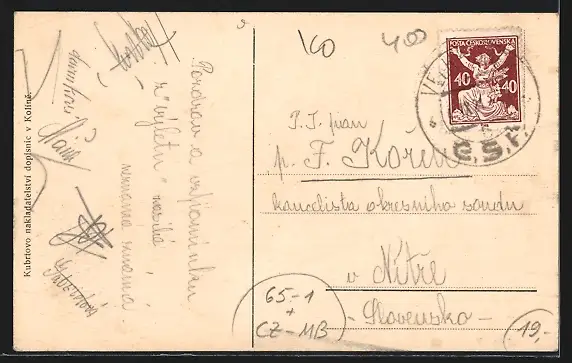 Kubrtovo nakladatelství dopisnic v Kolíně.
Pozdrav a vzpomínku
z výletu zasílá
neznámá známá
KO
400
POŠTA ČESKOSLOVENSKÁ
40 40
VEL
Č.S.R.
P. T. pan
p. F. Kořín
kancelista okresního soudu
v Nitře
- Slovensko -
65-1
+
CZ-MB
19,-